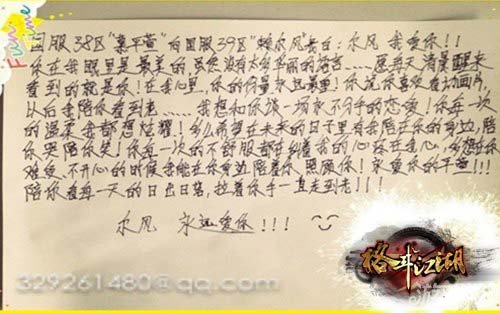 Fun time
国服38区"慕平萱"向国服39区"赖永风"告白:永风 我爱你!!
你在我眼里是最美的 虽然没有太多华丽的语言……愿每天清晨醒来
看到的就是你!在我心里,你的份量永远最重!你说你喜欢看动画片,
以后我陪你看到老……我想和你谈一场永不分手的恋爱!你每一次
的温柔我都想炫耀!多么希望在未来的日子里有我陪在你的身边,陪
你哭陪你笑!你每一次的不舒服都在刺着我的心疼在我心,多想在你
难受、不开心的时候我能在你身边陪着你、照顾你!永爱你的平萱!!!
陪你看每一天的日出日落,拉着你手一直走到老!!!
永风 永远爱你!!!
329261480@qq.com
格斗江湖